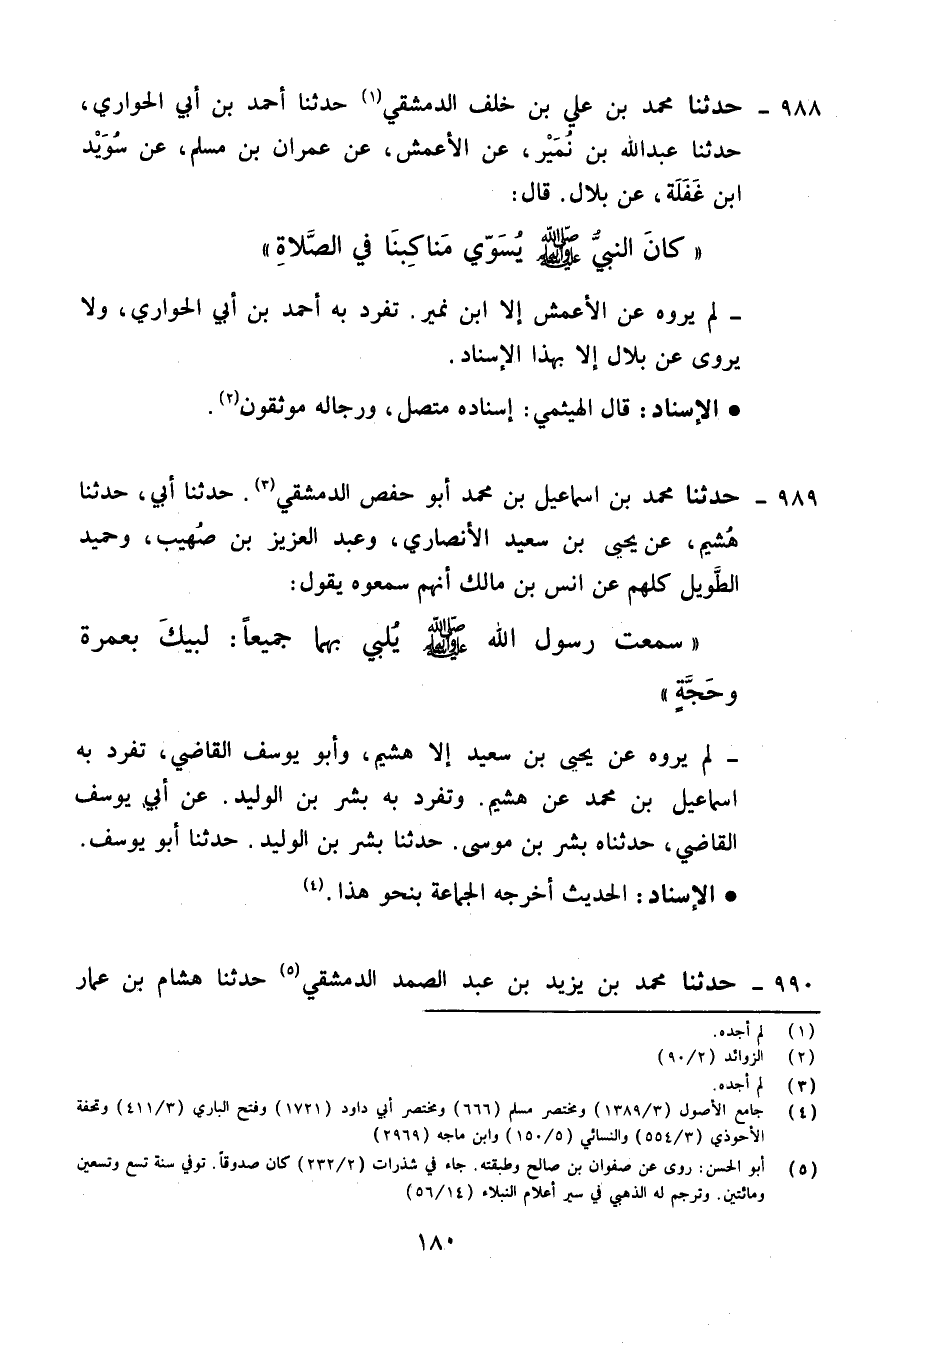 ٩٨٨ ـ حدثنا محمد بن علي بن خلف الدمشقي(١) حدثنا أحمد بن أبي الحواري،
حدثنا عبدالله بن نُمَيْر، عن الأعمش، عن عمران بن مسلم، عن سُوَيْد
ابن غَفَلَة، عن بلال. قال:
« كانَ النبيُّ ﷺ يُسَوّي مَناكِبنَا في الصَّلاةِ »
ـ لم يروه عن الأعمش إلا ابن نمير. تفرد به أحمد بن أبي الحواري، ولا
يروى عن بلال إلا بهذا الإسناد.
● الإسناد: قال الهيثمي: إسناده متصل، ورجاله موثقون(٢).
٩٨٩ ـ حدثنا محمد بن اسماعيل بن محمد أبو حفص الدمشقي(٣). حدثنا أبي، حدثنا
هُشيم، عن يحيى بن سعيد الأنصاري، وعبد العزيز بن صُهيب، وحميد
الطَّويل كلهم عن انس بن مالك أنهم سمعوه يقول:
« سمعت رسول الله ﷺ يُلبي بهما جميعاً: لبيكَ بعمرة
وحَجَّةٍ »
ـ لم يروه عن يحيى بن سعيد إلا هشيم، وأبو يوسف القاضي، تفرد به
اسماعيل بن محمد عن هشيم. وتفرد به بشر بن الوليد. عن أبي يوسف
القاضي، حدثناه بشر بن موسى. حدثنا بشر بن الوليد. حدثنا أبو يوسف.
● الإسناد: الحديث أخرجه الجماعة بنحو هذا.(٤)
٩٩٠ ـ حدثنا محمد بن يزيد بن عبد الصمد الدمشقي(٥) حدثنا هشام بن عمار
(١) لم أجده.
(٢) الزوائد (٩٠/٢)
(٣) لم أجده.
(٤) جامع الأصول (١٣٨٩/٣) ومختصر مسلم (٦٦٦) ومختصر أبي داود (١٧٢١) وفتح الباري (٤١١/٣) وتحفة
الأحوذي (٥٥٤/٣) والنسائي (١٥٠/٥) وابن ماجه (٢٩٦٩)
(٥) أبو الحسن: روى عن صفوان بن صالح وطبقته. جاء في شذرات (٢٣٢/٢) كان صدوقاً. توفي سنة تسع وتسعين
ومائتين. وترجم له الذهبي في سير أعلام النبلاء (٥٦/١٤)
١٨٠